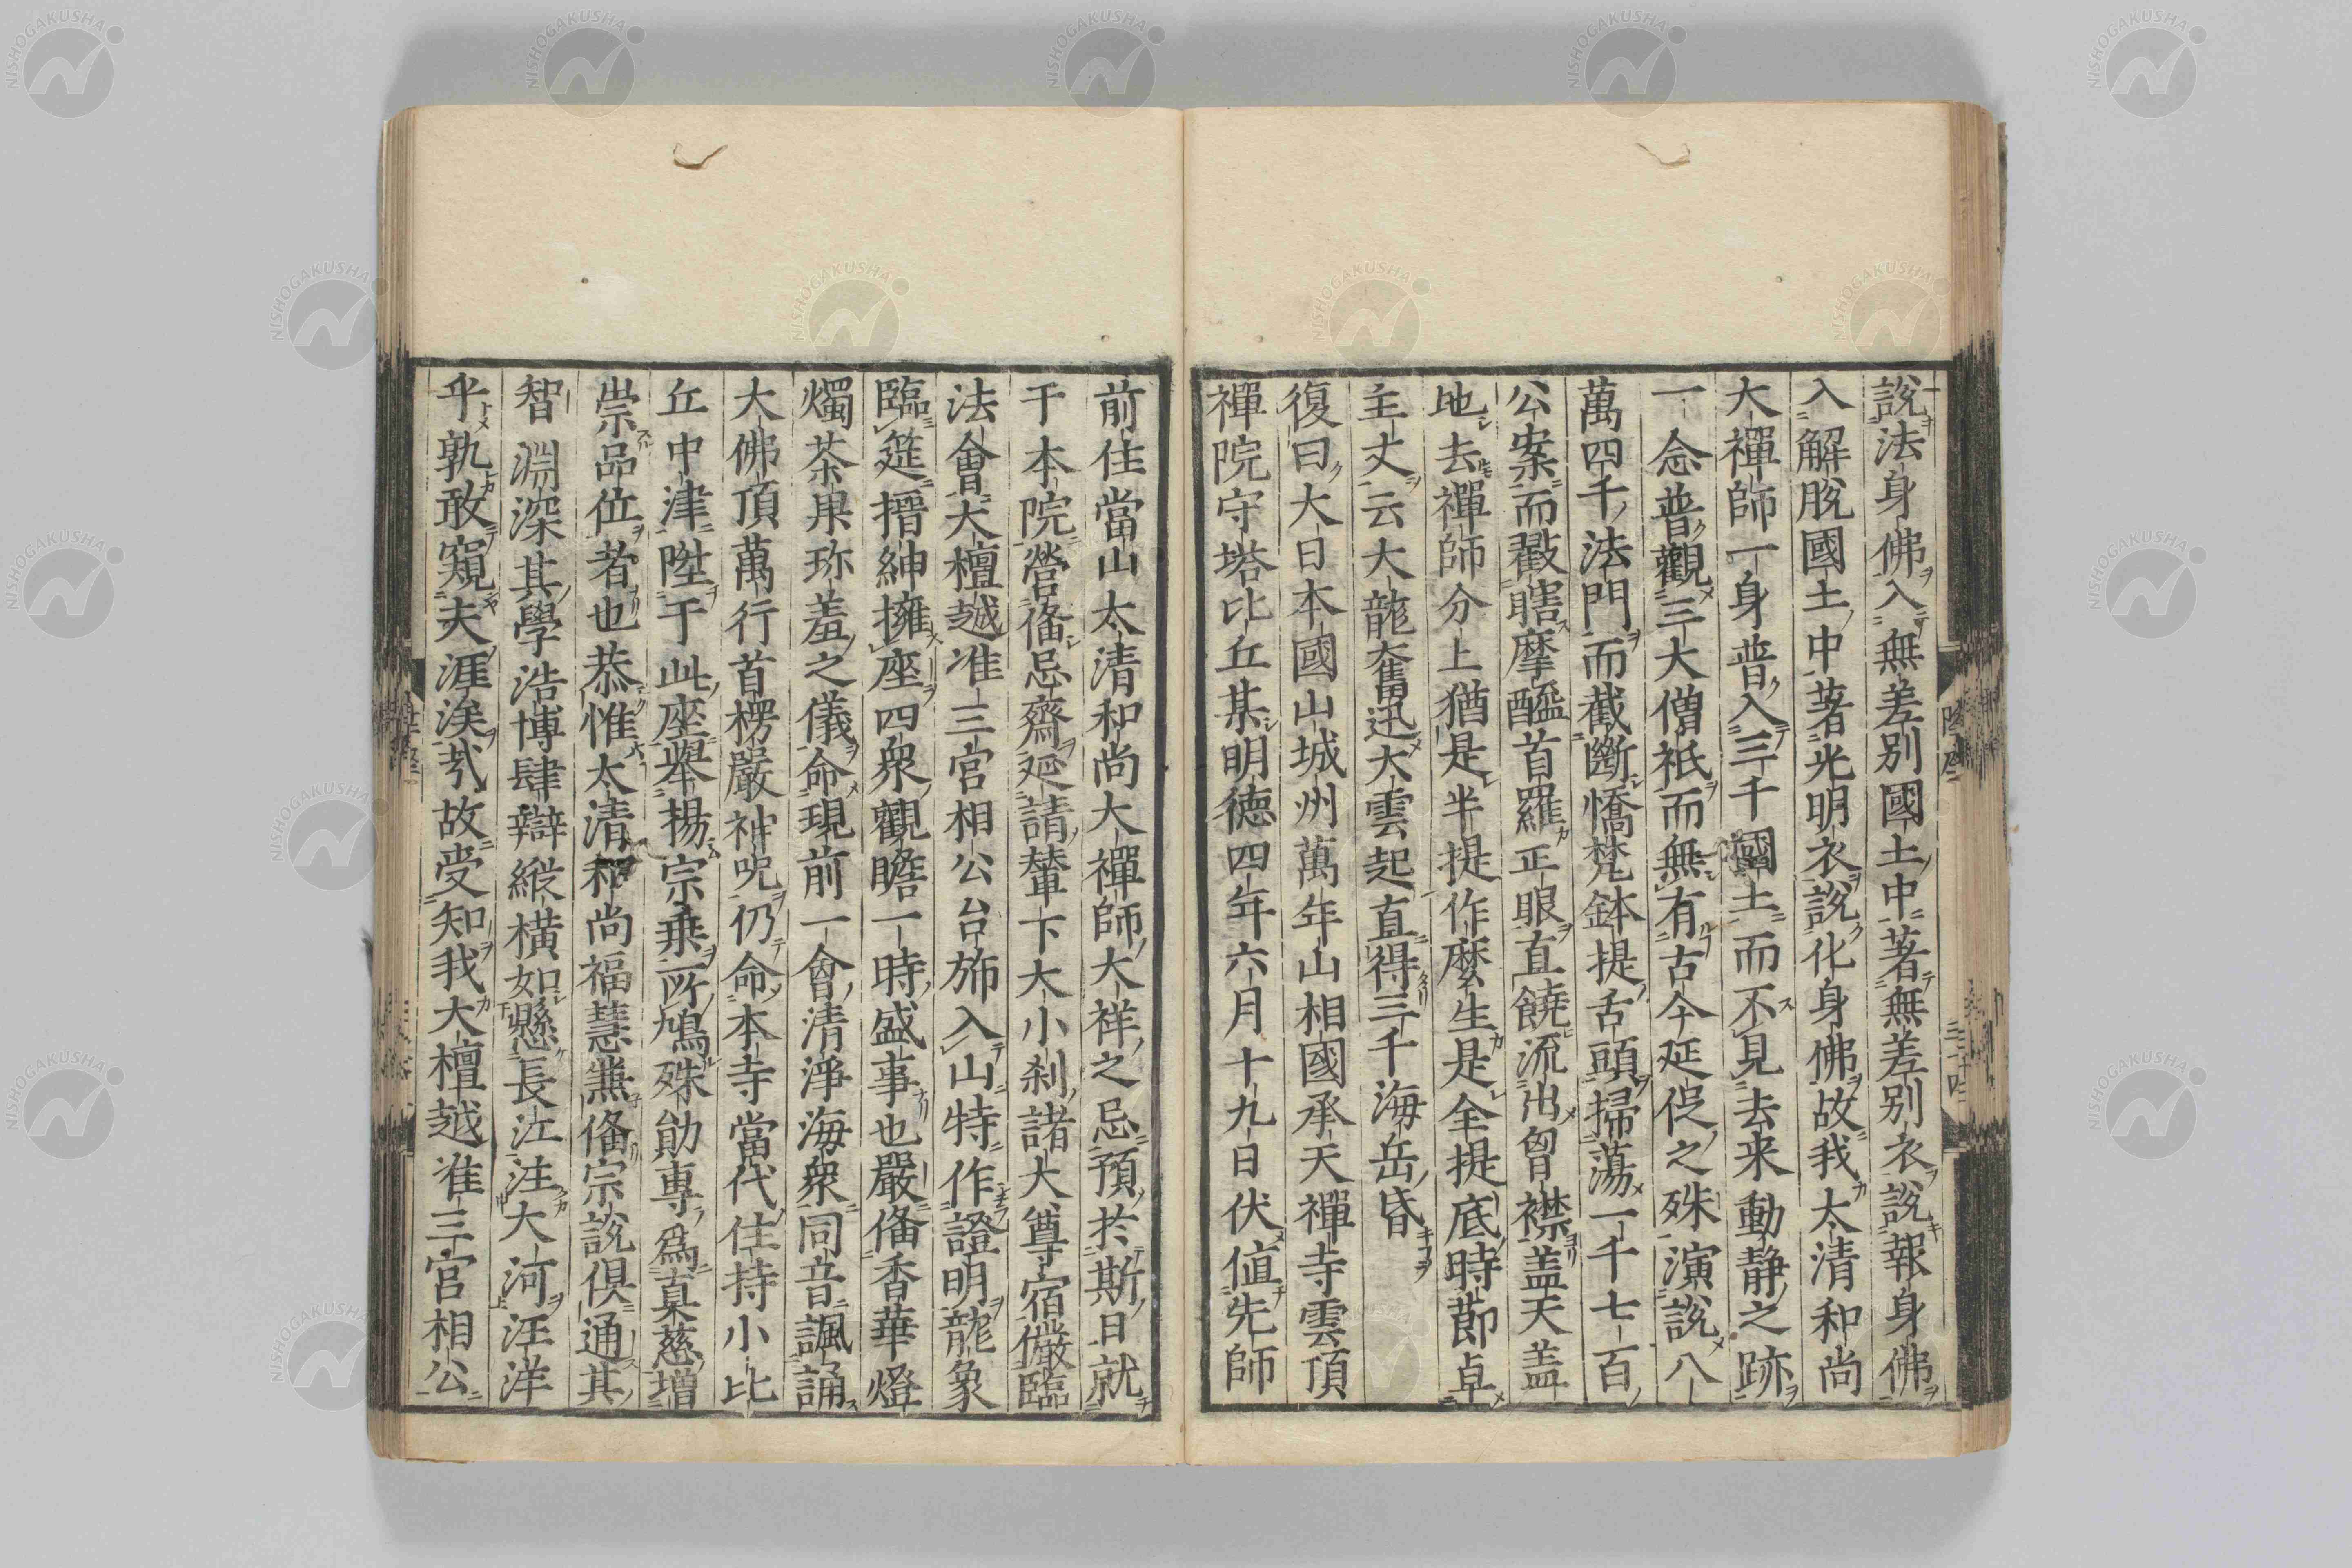 說法身佛入無差別國土中著無差別衣說報身佛
入解脫國土中著光明衣說化身佛故我太清和尚
大禪師一身普入三千國土而不見去来動静之跡
一念普觀三大僧祇而無有古今延促之殊演說八
萬四千法門而截斷憍梵鉢提舌頭掃蕩一千七百
公案而瞉瞎摩醯首羅正眼直饒流出胷襟盖天盖
地去禪師分上猶是半提作麼生是全提底時節卓
主丈云大龍奮迅大雲起直得三千海岳昏
復曰大日本國山城州萬年山相國承天禪寺雲頂
禪院守塔比丘某明德四年六月十九日伏值先師
前住當山太清和尚大禪師大祥之忌預於斯日就
于本院營俻忌齋延請輦下大小刹諸大尊宿儼臨
法會大檀越准三宮相公台斾入山特作證明龍象
臨筵搢紳擁座四衆觀瞻一時盛事也嚴俻香華燈
燭茶果珎羞之儀命現前一會清淨海衆同音諷誦
大佛頂萬行首楞嚴神呪仍命本寺當代住持小比
丘中津陞于此座舉揚宗乗所鳩殊勛專爲真慈增
崇品位者也恭惟太清和尚福慧兼俻宗說俱通其
智淵深其學浩博肆辯縱橫如懸長江注大河汪洋
乎孰敢窺夫涯涘哉故受知我大檀越准三宮相公
三十四